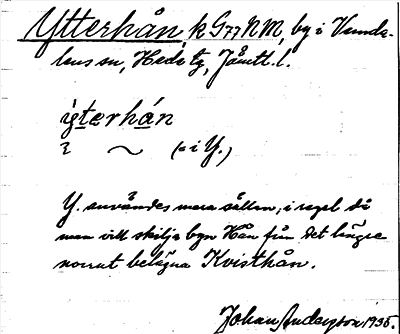 Ytterhån, k G77 N M, by i Vemda-
lens sn, Hede tg, Jämtl. l.
ỳterhán
~ (= i Y.)
Y. användes mera sällan, i regel då
man vill skilja byn Hån från det längre
norrut belägna Kvisthån.
Johan Anderson 1935.